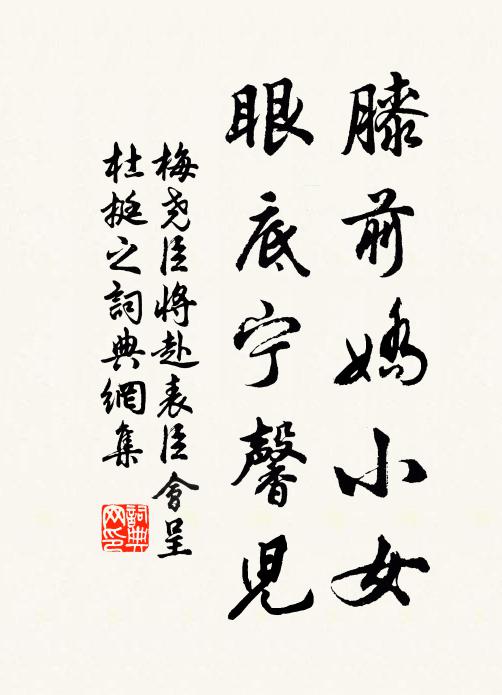 膝前嬌小女
眼底宁馨児
梅尧臣將赴表臣會呈
杜挺之詞典網集
詞典网印